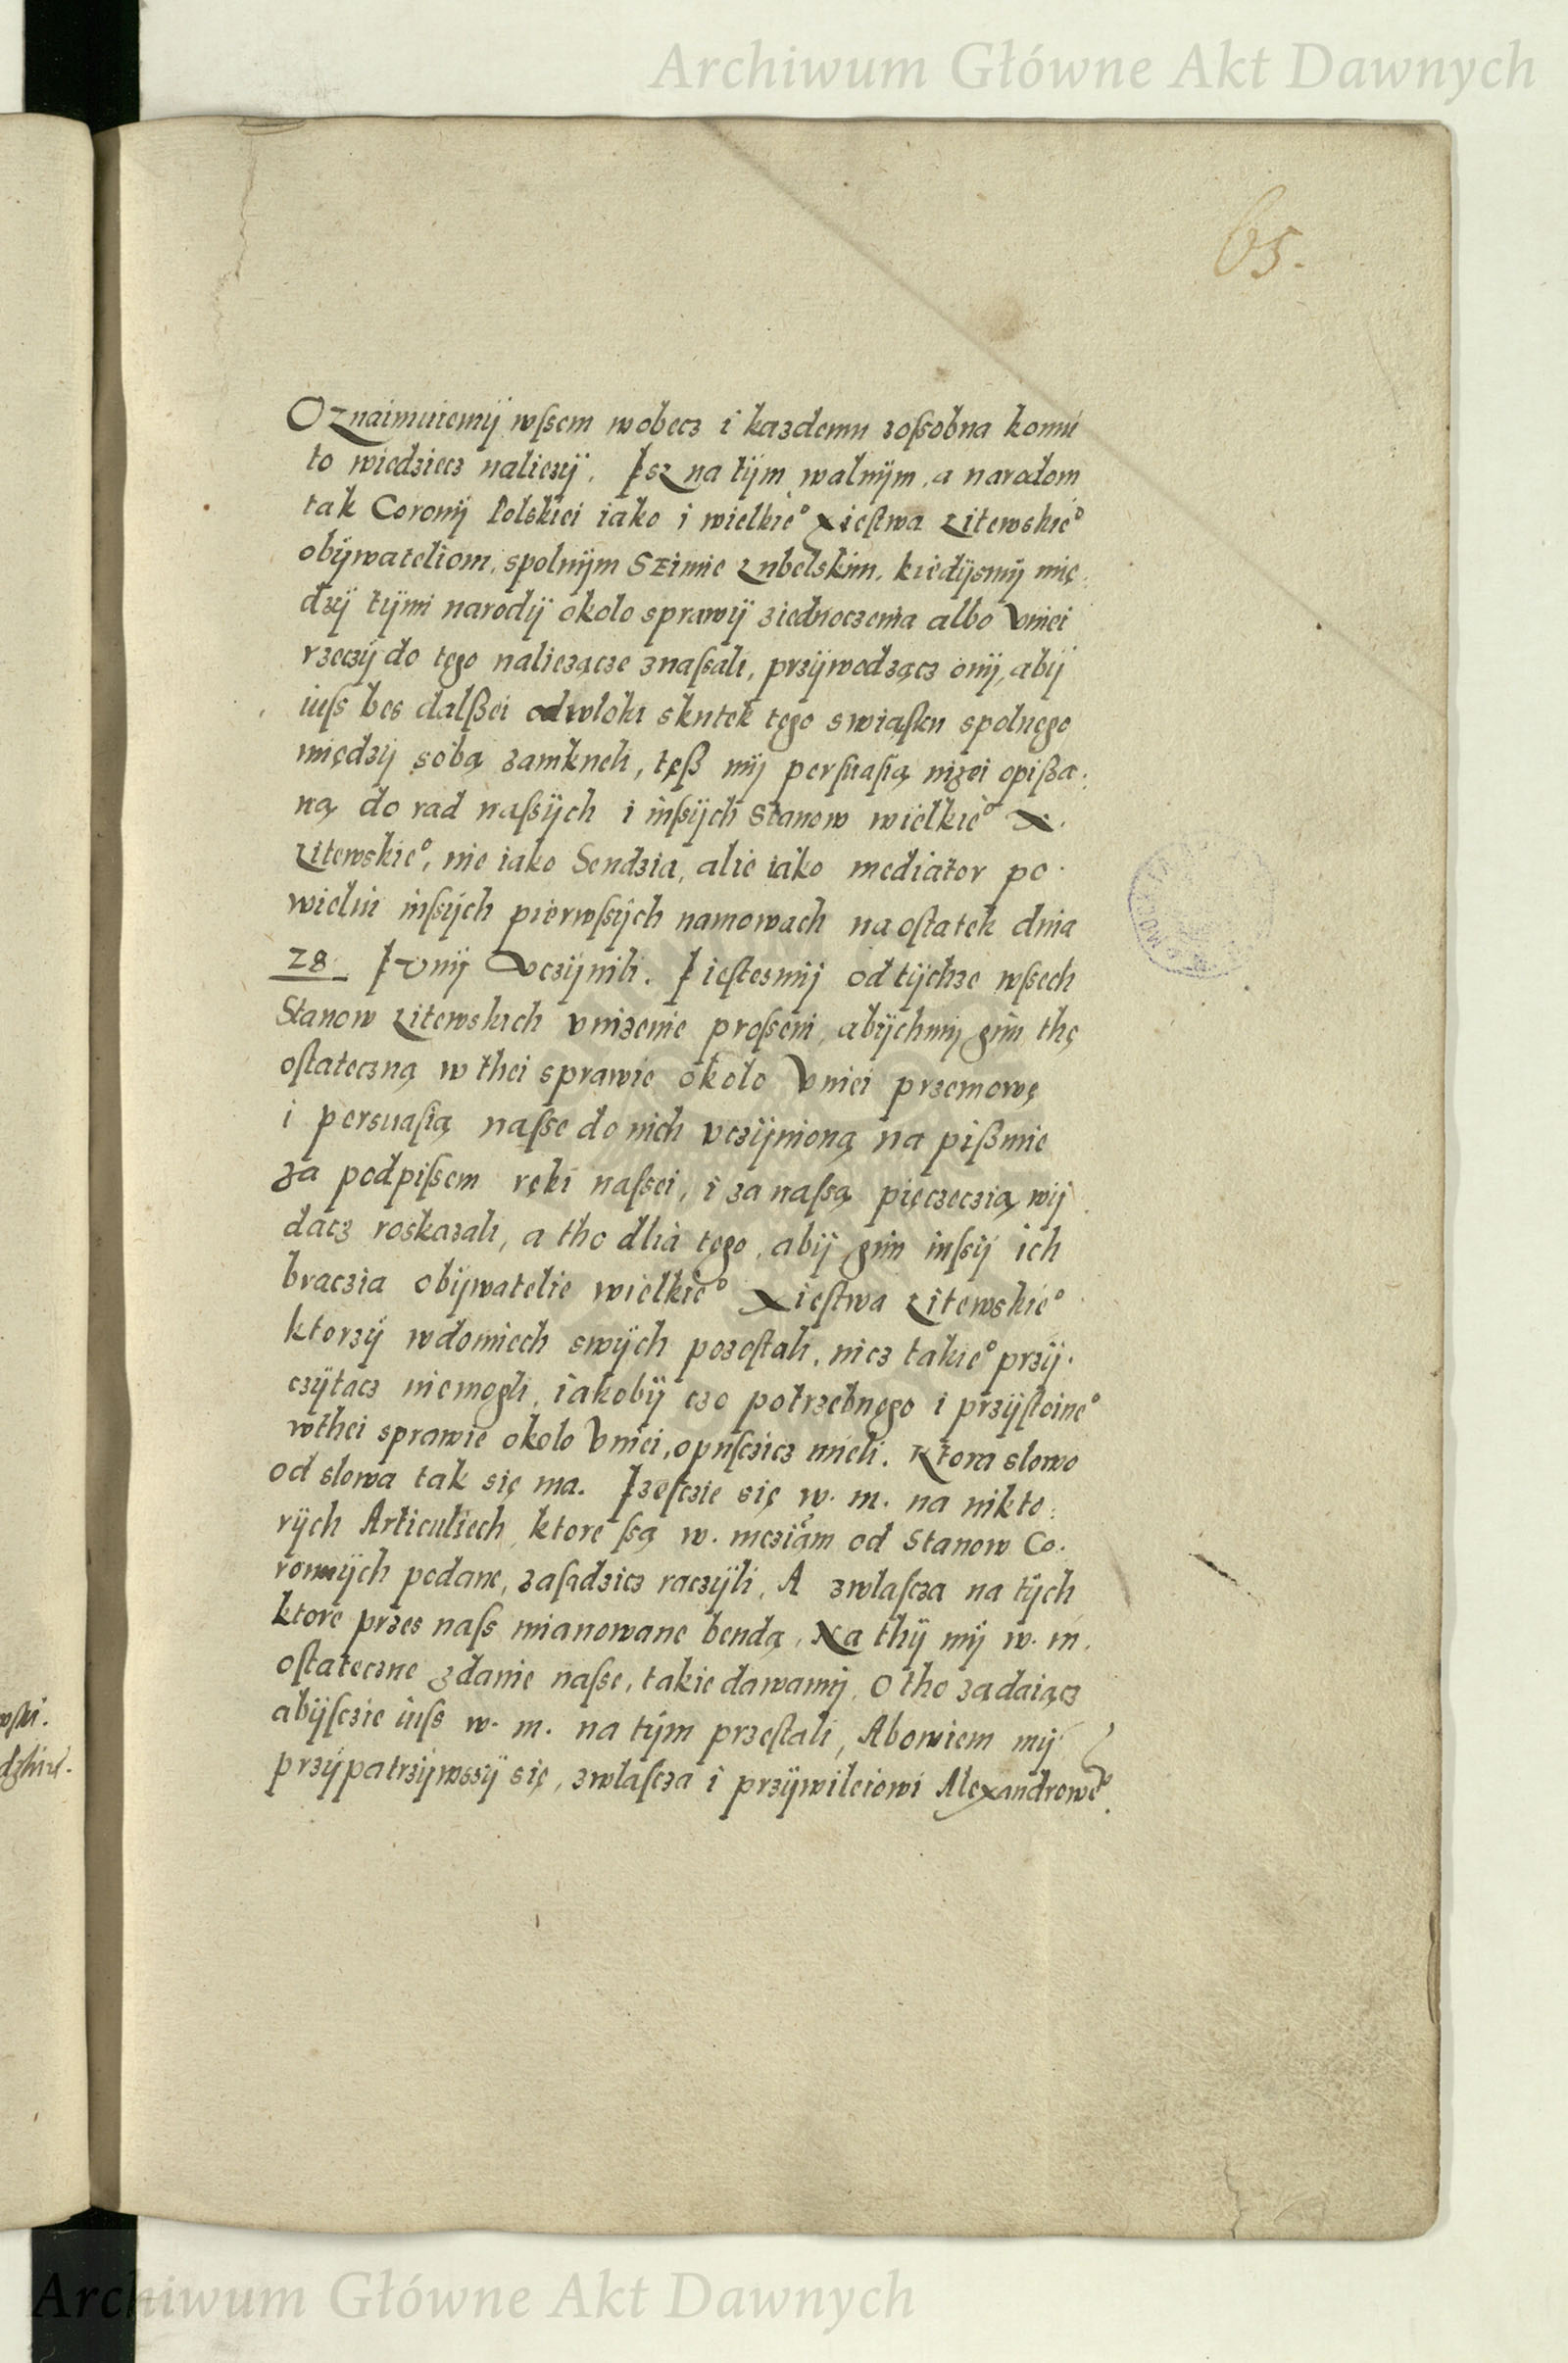 Archiwum Główne Akt Dawnych
65.
Oznaimuiemÿ wſsem wobecz i kazdemu zoſsobna komu
to wiedziecz naliezÿ. Isz na tÿm walnÿm, a narodom
tak Coronÿ Polskiei iako i wielkie° Xieſtwa Litewskie°
obÿwateliom, spolnÿm Szimie Lubelskim, kiedÿsmÿ mię
dzÿ tÿmi narodÿ okolo sprawÿ ziednoczenia albo Vniei
rzeczÿ do tego naliezącze znaſsali, przÿwodzącz onÿ, abÿ
iuſs bes dalßei odwloki skutek tego swiąſku spolnego
międzÿ sobą zamkneli, tęß mÿ perſuaſią nizei opißa:
ną do rad naſsÿch i inſsÿch Stanow wielkie° X.
Litewskie°, nie iako Sendzia, alie iako mediator po
wieliu inſsÿch pierwſsÿch namowach na oſtatek dnia
28. Ivnÿ Vczÿnili. I ieſtesmÿ od tÿchze wſsech
Stanow Litewskich vnizenie proſseni, abÿchmÿ gim thę
oſtateczną w thei sprawie okolo Vniei przemowę
i persuaſią naſse do nich vczÿnioną na pißmie
za podpiſsem ręki naſsei, i za naſsą pięczeczią wÿ
dacz roskazali, a tho dlia tego, abÿ gim inſsÿ ich
braczia obÿwatelie wielkie° Xieſtwa Litewskie°
ktorzÿ wdomiech swÿch pozoſtali, nicz takie° przÿ
czÿtacz niemogli, iakobÿ czo potrzebnego i przÿſtoine°
wthei sprawie okolo Vniei, opuſczicz mieli. Ktora slowo
od slowa tak się ma. Izeſczie się w. m. na nikto:
rÿch Articuliech, ktore ſsą w. mcziam od Stanow Co.
ronnÿch podane, zaſadzicz raczÿli, A zwlaſcza na tÿch
ktore przes naſs mianowane bendą, Na thÿ mÿ w. m.
oſtateczne zdanie naſse, takie dawamÿ, O tho zadaiącz
abÿſczie iuſs w. m. na tÿm przeſtali, Abowiem mÿ
przÿpatrzÿwszÿ się, zwlaſcza i przÿwileiowi Alexandrowe°.
Archiwum Główne Akt Dawnych